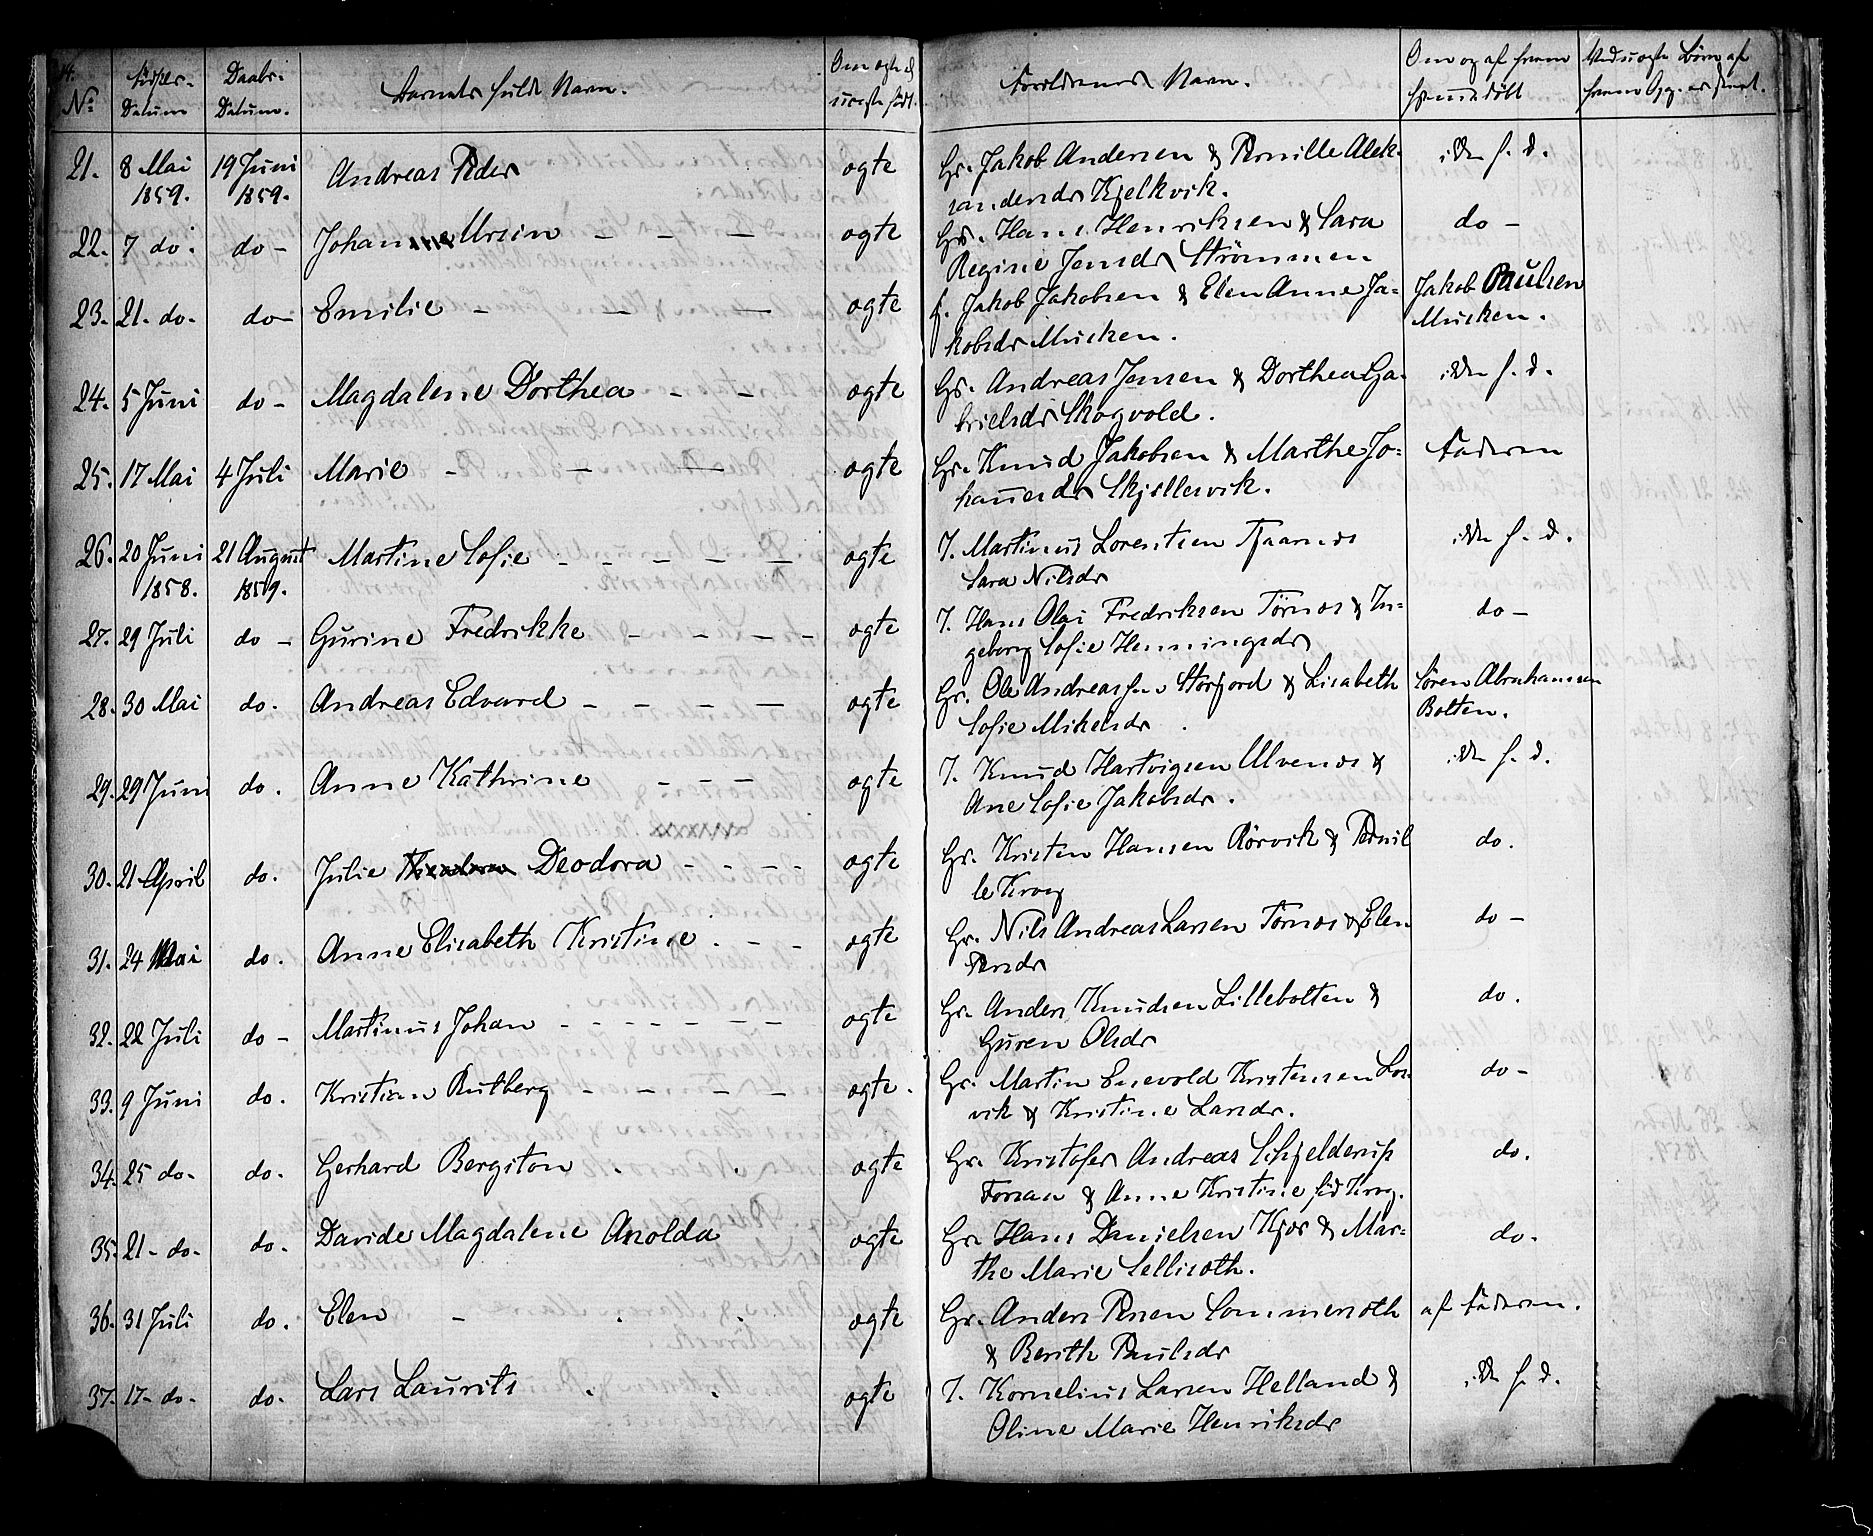 No. Fødsels-Datum Daabs-Datum. Barnets fulde Navn. Om ægte el. uægte født. Forældrenes Navn. Om og af hvem hjemmedøbt
21. 8 Mai 1859. 19 Juni 1859. Andreas Peder ægte Gr. Jakob Andersen & Pernille Alek-
sandersdr Kjelkvik. ikke h. d.
22. 7 do. do - Johan Ursin - - - ægte Gr. Hans Henriksen & Sara
Regine Jensdr Strømmen do -
23. 21. do. do - Emilie - - - ægte f. Jakob Jakobsen & Elen Anne Ja-
kobsdr Musken. Jakob Paulsen
Musken.
24. 5 Juni do - Magdalene Dorthea - - ægte Gr. Andreas Jensen & Dorthea Ga-
brielsdr Skogvold. ikke h. d.
25. 17 Mai 4 Juli Marie - - - ægte Gr. Knud Jakobsen & Marthe Jo-
hannesdr Skjellesvik. Faderen
26. 20 Juni 1858. 21 August 1859. Martine Sofie - - - - - ægte I. Martinus Lorentsen Tjaarnes
Sara Nilsdr ikke h. d.
27. 29 Juli do - Gurine Fredrikke - - - - ægte I. Hans Olai Fredriksen Tørnes & In-
geborg Sofie Henningsdr do -
28. 30 Mai do. Andreas Edvard - - - - ægte Gr. Ole Andreassen Storfjord & Lisabeth
Sofie Mikelsdr. Søren Abrahamsen
Botten.
29. 29 Juni do. Anne Kathrine - - - ægte I. Knud Hartvigsen Ulvenes &
Ane Sofie Jakobsdr. ikke h. d.
30. 21 April do. Julie Deodora - - - - ægte Gr. Kristen Hansen Rørvik & Pernil
le Krog do.
31. 24 Mai do. Anne Elisabeth Kristine . - - ægte Gr. Nils Andreas Larsen Tørnes & Elen
Persdr do -
32. 22 Juli do - Martinus Johan - - - - - - - ægte Gr. Anders Knudsen Lillebotten &
Guren Olsdr do.
33. 9 Juni do. Kristian Rutberg - - - - ægte. Gr. Martin Enevold Kristensen Los
vik & Kristine Larsdr. do -
34. 25 do. do. Gerhard Bergiton . . ægte Gr. Kristofer Andreas Schjelderup
Forsan & Anne Kristine fød Krog. do.
35. 21- do- do. Davide Magdalene Anolda ægte Gr. Hans Danielsen Kjør & Mar-
the Marie Sellisoth. do.
36. 31 Juli do. Elen - . . ægte Gr. Anders Persen Sommersoth
& Berith Paulsdr af Faderen.
37. 17- do- do. Lars Laurits . . ægte I. Kornelius Larsen Helland &
Oline Marie Henriksdr ikke h. d.